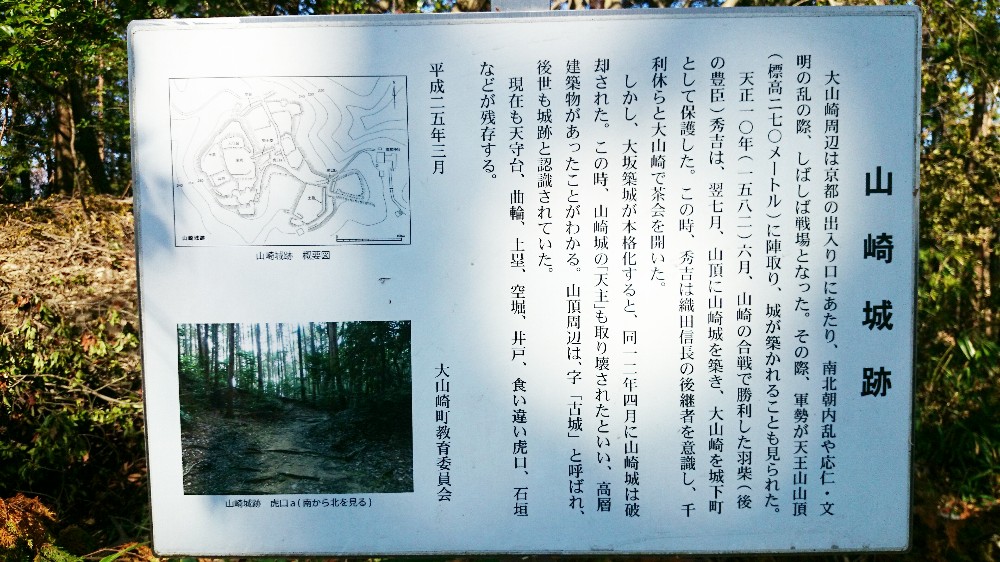 山崎城跡
大山崎周辺は京都の出入り口にあたり、南北朝内乱や応仁・文
明の乱の際、しばしば戦場となった。その際、軍勢が天王山山頂
(標高二七〇メートル)に陣取り、城が築かれることも見られた。
天正一〇年(一五八二)六月、山崎の合戦で勝利した羽柴(後
の豊臣)秀吉は、翌七月、山頂に山崎城を築き、大山崎を城下町
として保護した。この時、秀吉は織田信長の後継者を意識し、千
利休らと大山崎で茶会を開いた。
しかし、大坂築城が本格化すると、同一二年四月に山崎城は破
却された。この時、山崎城の「天主」も取り壊されたといい、高層
建築物があったことがわかる。山頂周辺は、字「古城」と呼ばれ、
後世も城跡と認識されていた。
現在も天守台、曲輪、土塁、空堀、井戸、食い違い虎口、石垣
などが残存する。
平成二五年三月
大山崎町教育委員会
山崎城跡
山崎城跡 概要図
山崎城跡 虎口a(南から北を見る)